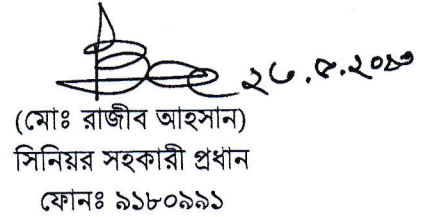 (মোঃ রাজীব আহসান)
সিনিয়র সহকারী প্রধান
ফোনঃ ৯১৮০৯৯১